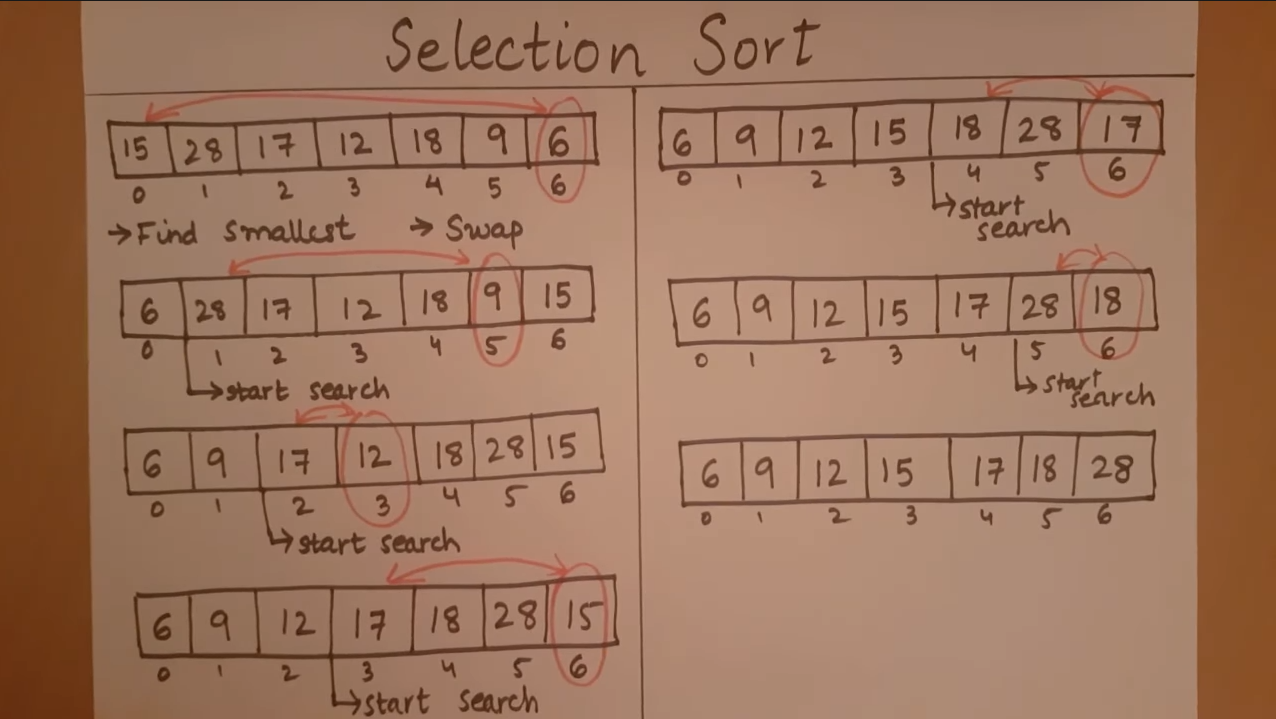 Selection Sort
15 28 17 12 18 9 6
0 1 2 3 4 5 6
→Find smallest → Swap
6 28 17 12 18 9 15
0 1 2 3 4 5 6
start search
6 9 17 12 18 28 15
0 1 2 3 4 5 6
start search
6 9 12 17 18 28 15
0 1 2 3 4 5 6
start search
6 9 12 15 18 28 17
0 1 2 3 4 5 6
start
search
6 9 12 15 17 28 18
0 1 2 3 4 5 6
start
search
6 9 12 15 17 18 28
0 1 2 3 4 5 6